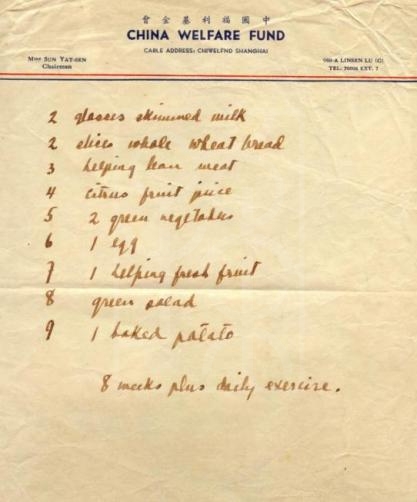 中國福利基金會
CHINA WELFARE FUND
CABLE ADDRESS: CHIWELFND SHANGHAI
Mme Sun Yat-sen
Chairman
988-A LINSEN LU (C)
TEL. 70094 EXT. 7
2 glasses skimmed milk
2 slices whole wheat bread
3 helping lean meat
4 citrus fruit juice
5 2 green vegetables
6 1 egg
7 1 helping fresh fruit
8 green salad
9 1 baked potato
8 weeks plus daily exercise.